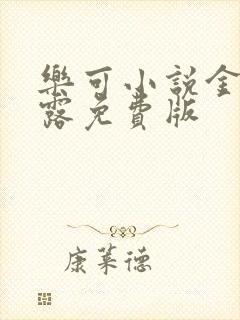 樂可小說金
露免費版
康萊德